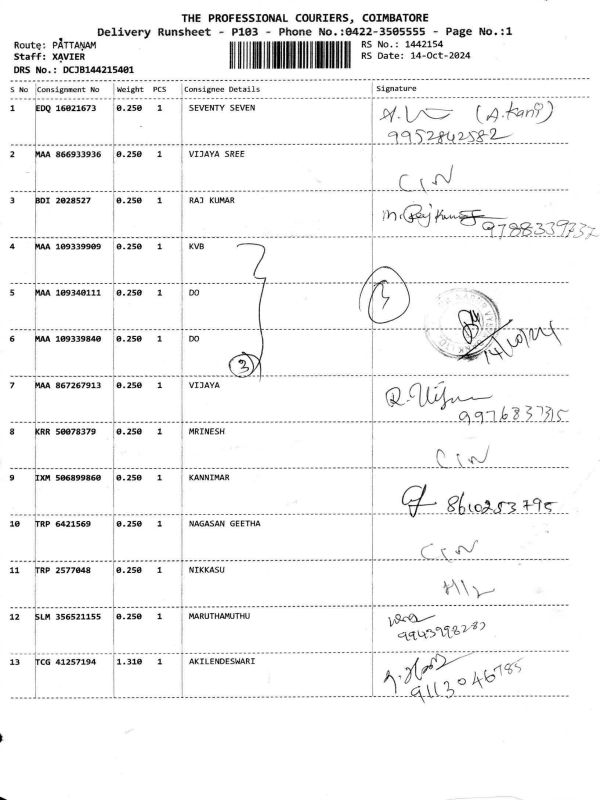 THE PROFESSIONAL COURIERS, COIMBATORE
Delivery Runsheet - P103 - Phone No.:0422-3505555 - Page No.:1
Route: PATTANAM RS No.: 1442154
Staff: XAVIER RS Date: 14-Oct-2024
DRS No.: DCJB144215401
S No Consignment No Weight PCS Consignee Details Signature
1 EDQ 16021673 0.250 1 SEVENTY SEVEN (A.Kani)
9952842582
2 MAA 866933936 0.250 1 VIJAYA SREE
3 BDI 2028527 0.250 1 RAJ KUMAR M. Rajkumar
9788339737
4 MAA 109339909 0.250 1 KVB
5 MAA 109340111 0.250 1 DO
6 MAA 109339840 0.250 1 DO 14/10/24
3
7 MAA 867267913 0.250 1 VIJAYA
9976837315
8 KRR 50078379 0.250 1 MRINESH
9 IXM 506899860 0.250 1 KANNIMAR 8610253795
10 TRP 6421569 0.250 1 NAGASAN GEETHA
11 TRP 2577048 0.250 1 NIKKASU
12 SLM 356521155 0.250 1 MARUTHAMUTHU
13 TCG 41257194 1.310 1 AKILENDESWARI
9113046785